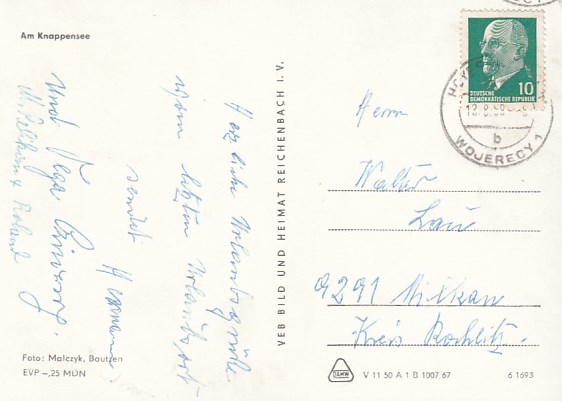 Am Knappensee
Herzliche Urlaubsgrüße
vom letzten Urlaubsort
sendet Hermann
und Olga
Roland
Foto: Malczyk, Bautzen
EVP –,25 MDN
VEB BILD UND HEIMAT REICHENBACH I. V.
10
DEUTSCHE
DEMOKRATISCHE REPUBLIK
WOJERECY 1
b
Herrn
Walter
Lau
9291 Milkau
Kreis Rochlitz.
V 11 50 A 1 B 1007/67
6 1693